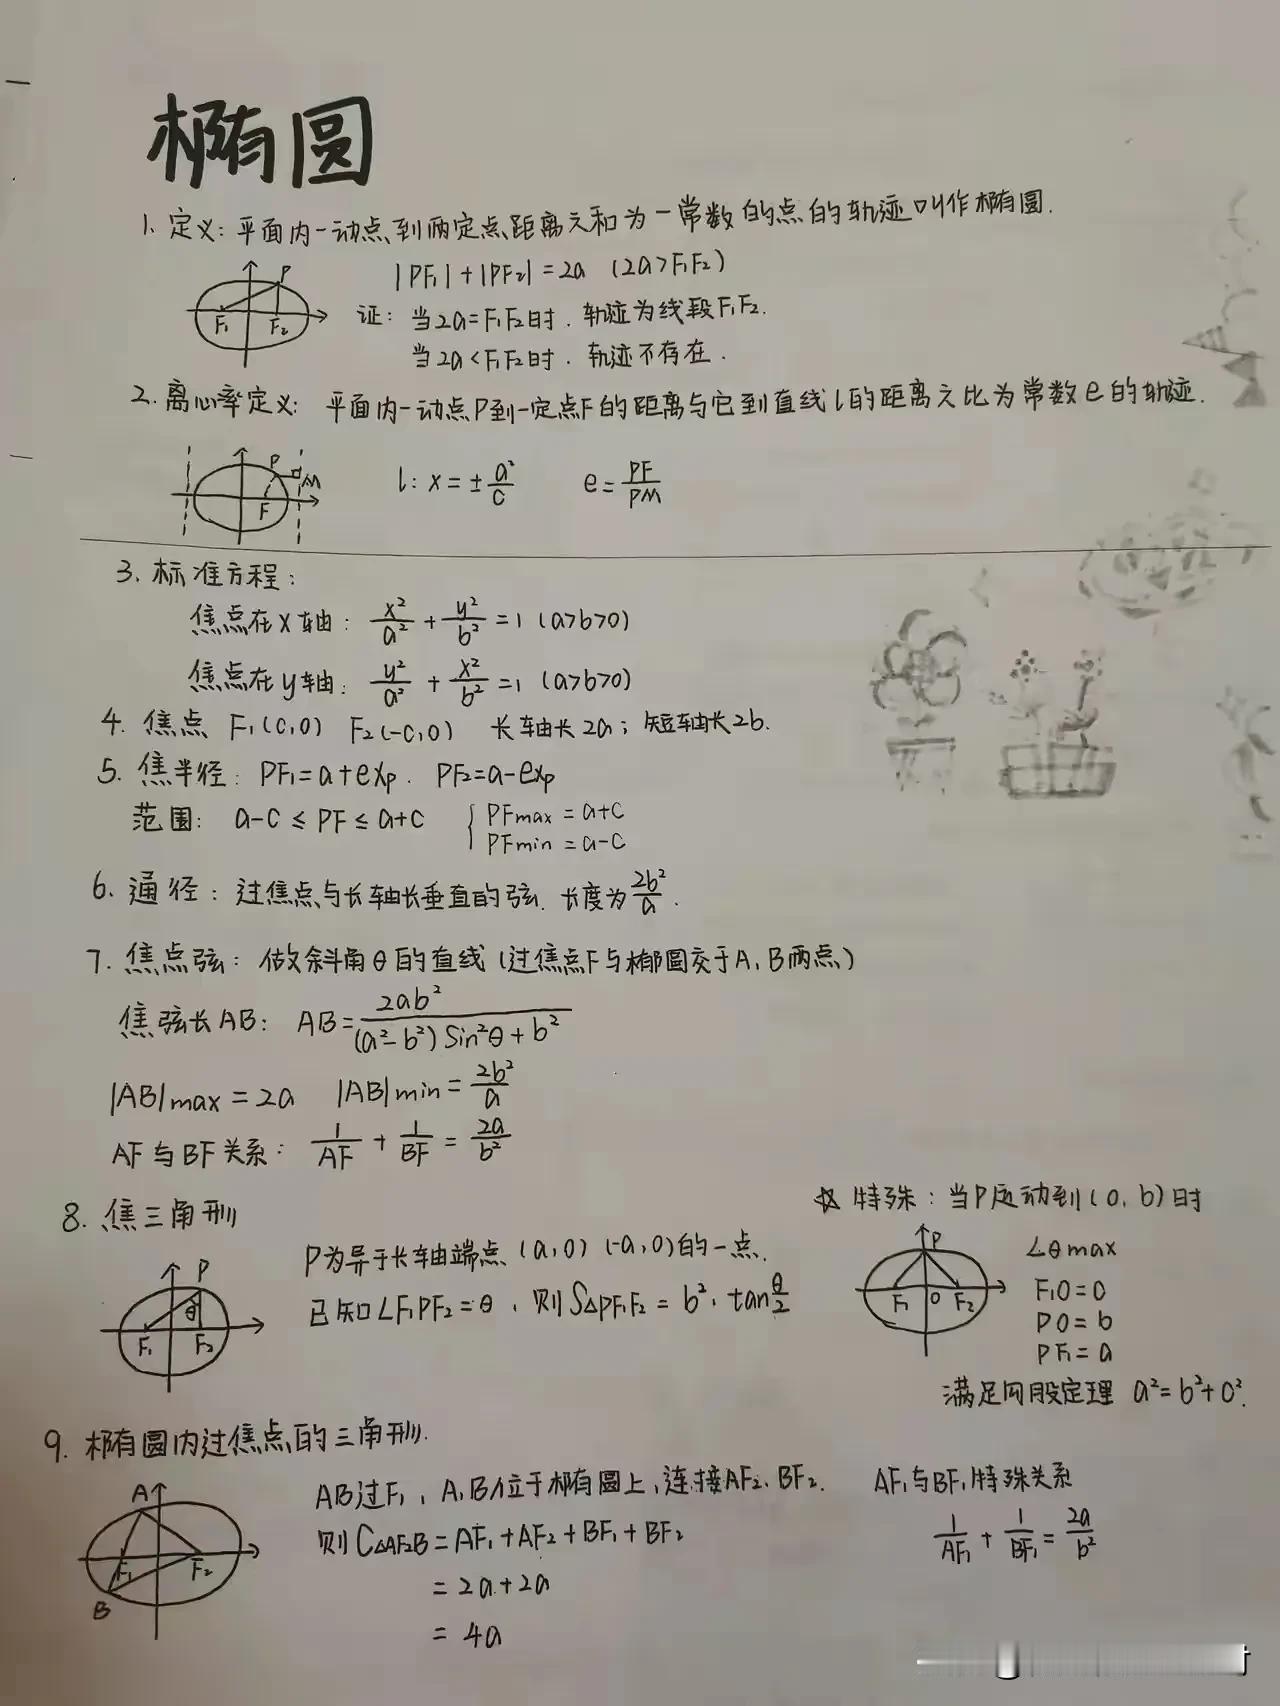 椭圆
1. 定义: 平面内一动点到两定点距离之和为一常数的点的轨迹叫作椭圆.
|PF₁|+|PF₂|=2a (2a>F₁F₂)
P
F₁ F₂
证: 当2a=F₁F₂时. 轨迹为线段F₁F₂.
当2a<F₁F₂时. 轨迹不存在.
2. 离心率定义: 平面内一动点P到一定点F的距离与它到直线l的距离之比为常数e的轨迹.
P M
F
l: x=±a²/c e=PF/PM
3. 标准方程:
焦点在x轴: x²/a² + y²/b² =1 (a>b>0)
焦点在y轴: y²/a² + x²/b² =1 (a>b>0)
4. 焦点 F₁(c,0) F₂(-c,0) 长轴长2a; 短轴长2b.
5. 焦半径: PF₁=a+exp. PF₂=a-exp
范围: a-c≤PF≤a+c { PFmax=a+c
PFmin=a-c
6. 通径: 过焦点与长轴长垂直的弦. 长度为2b²/a.
7. 焦点弦: 做斜角θ的直线(过焦点F与椭圆交于A,B两点)
焦弦长AB: AB=2ab²/((a²-b²)Sin²θ+b²)
|AB|max=2a |AB|min=2b²/a
AF与BF关系: 1/AF + 1/BF = 2a/b²
8. 焦三角形
P
θ
F₁ F₂
P为异于长轴端点(a,0) (-a,0)的一点.
已知∠F₁PF₂=θ, 则S△PF₁F₂=b²·tanθ/2
☆ 特殊: 当P运动到(0,b)时
P
F₁ O F₂
∠θmax
F₁O=C
PO=b
PF₁=a
满足勾股定理 a²=b²+c².
9. 椭圆内过焦点的三角形.
A
F₁ F₂
B
AB过F₁, A,B位于椭圆上, 连接AF₂、BF₂.
则C△AF₂B=AF₁+AF₂+BF₁+BF₂
=2a+2a
=4a
AF₁与BF₁特殊关系
1/AF₁ + 1/BF₁ = 2a/b²